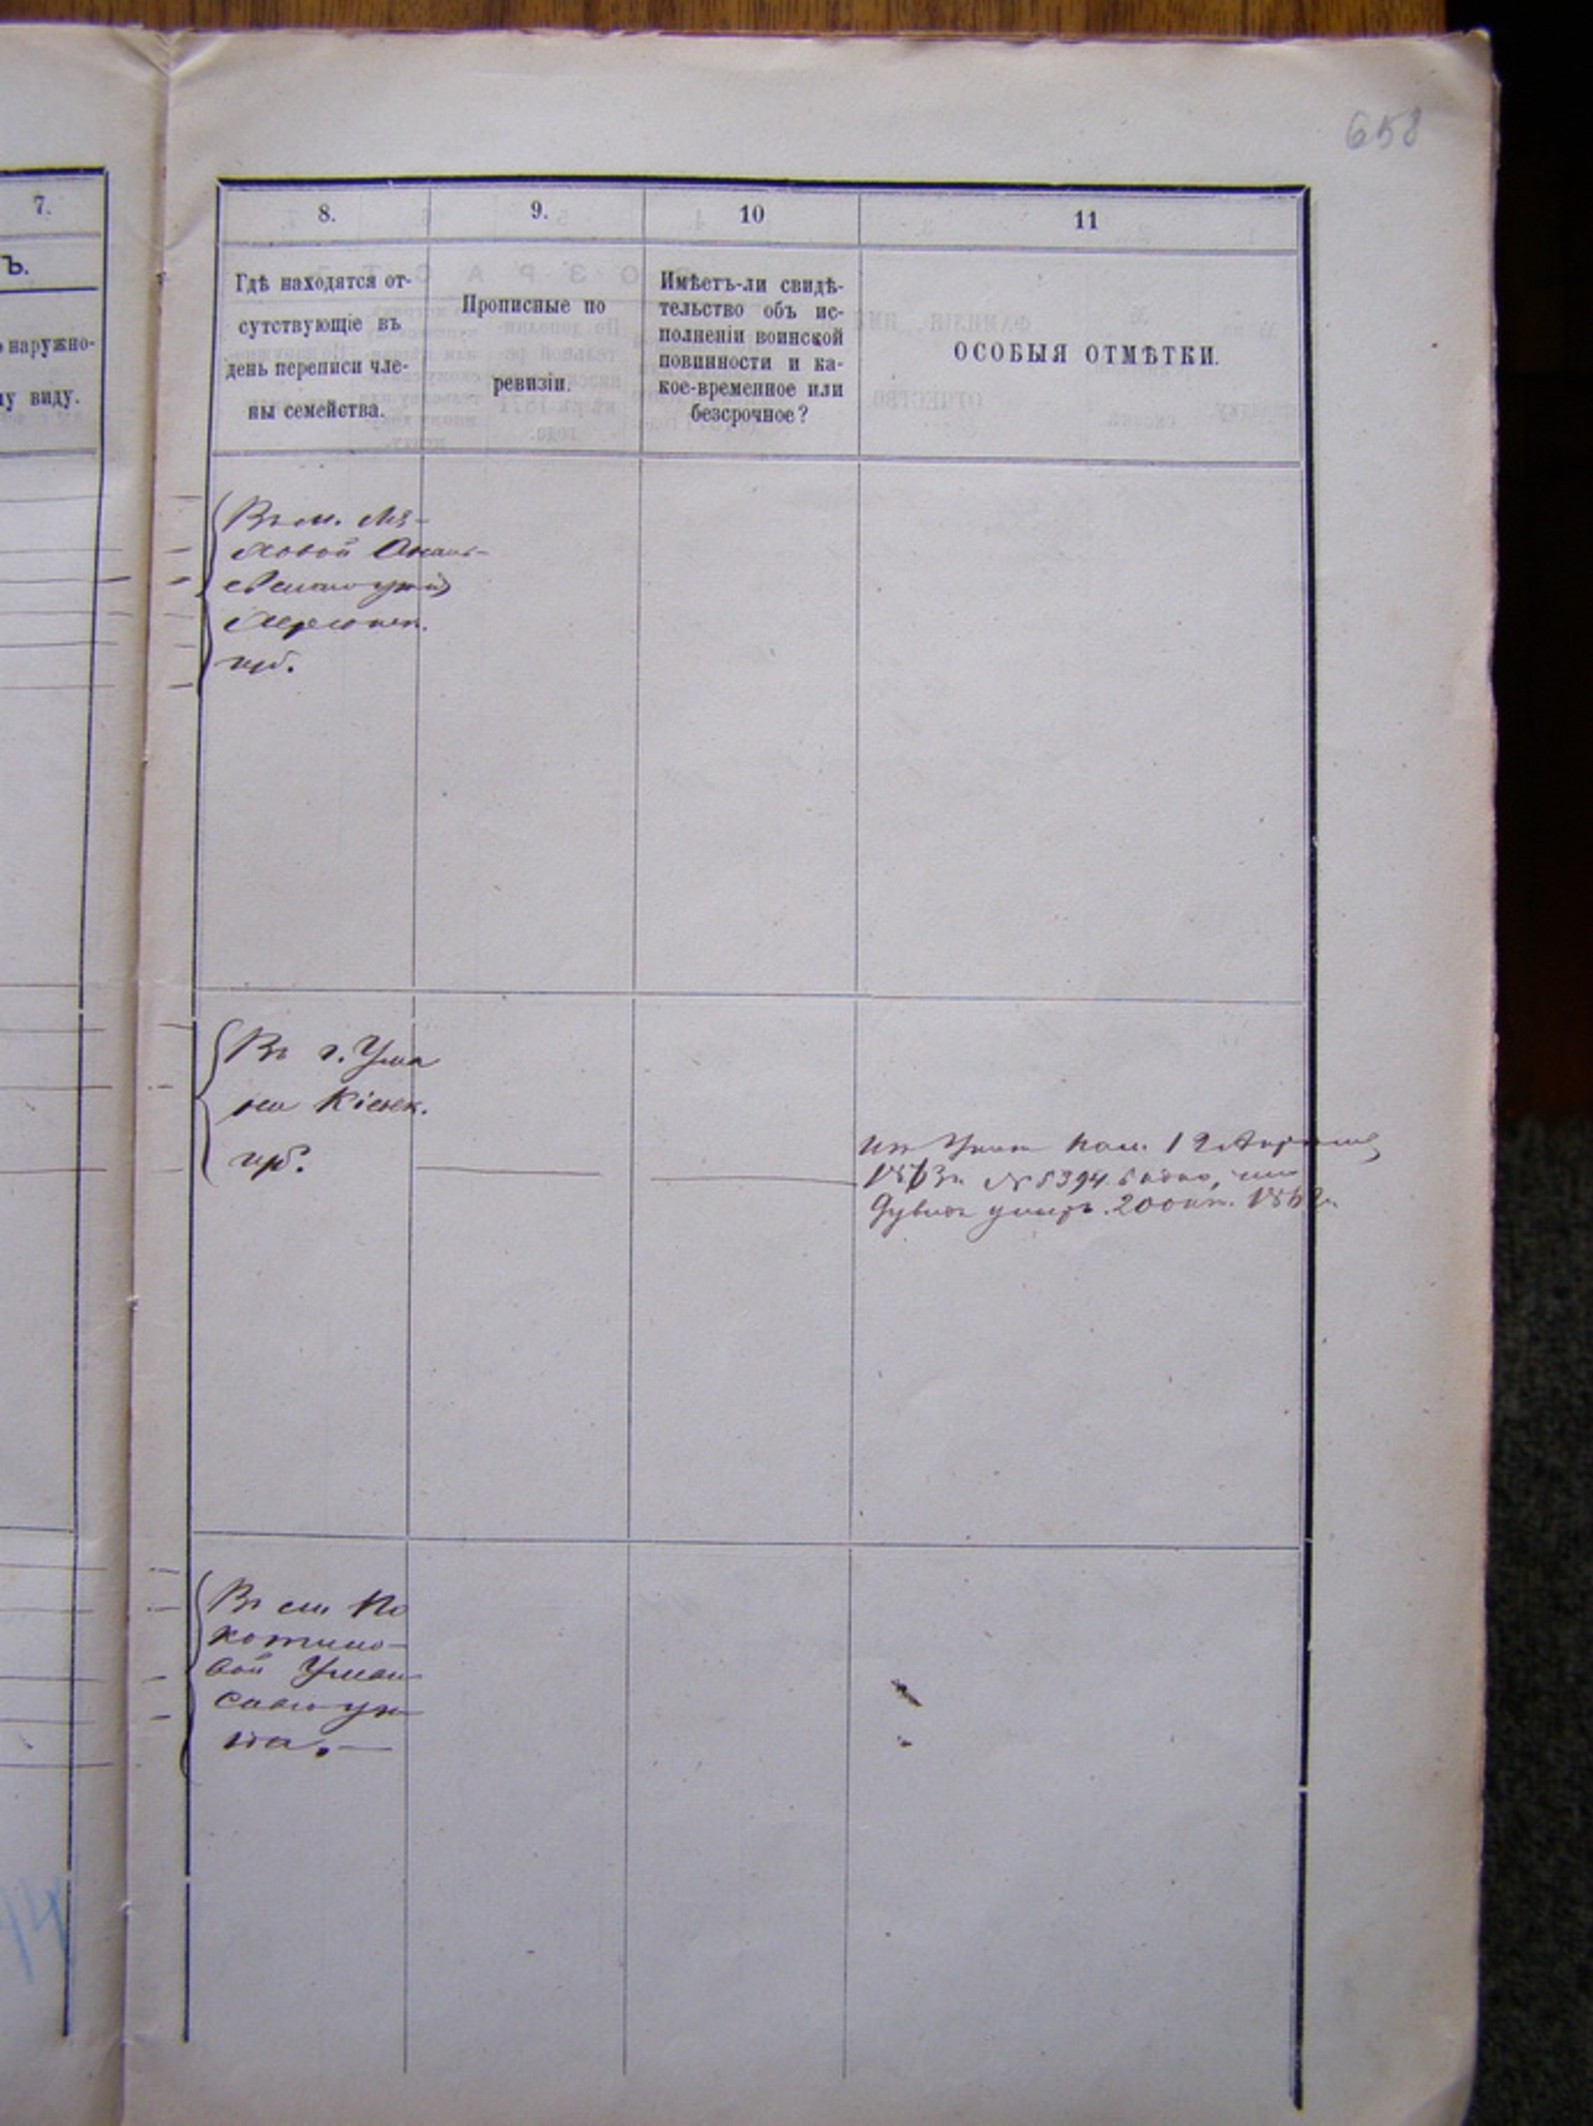 658
7.
Ъ.
наружно-
му виду.
8.
9.
10
11
Гдѣ находятся от-
сутствующіе въ
день переписи чле-
ны семейства.
Прописные по
ревизіи.
Имѣетъ-ли свидѣ-
тельство объ ис-
полненіи воинской
повинности и ка-
кое-временное или
безсрочное?
ОСОБЫЯ ОТМѢТКИ.
Въ м.
Херсонск.
губ.
Въ г. Ума
ни Кіевск.
губ.
12 Апрѣля
№ 5394 видно, что
умеръ 20 окт.
Въ с. По
котило-
вой Уман
скаго уѣ
зда.
44